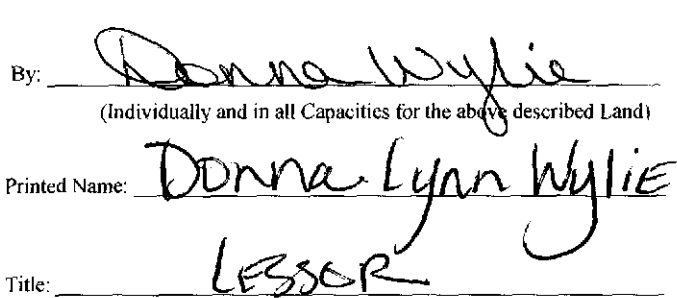 By: Donna Wylie
(Individually and in all Capacities for the above described Land)
Printed Name: Donna Lynn Wylie
Title: LESSOR